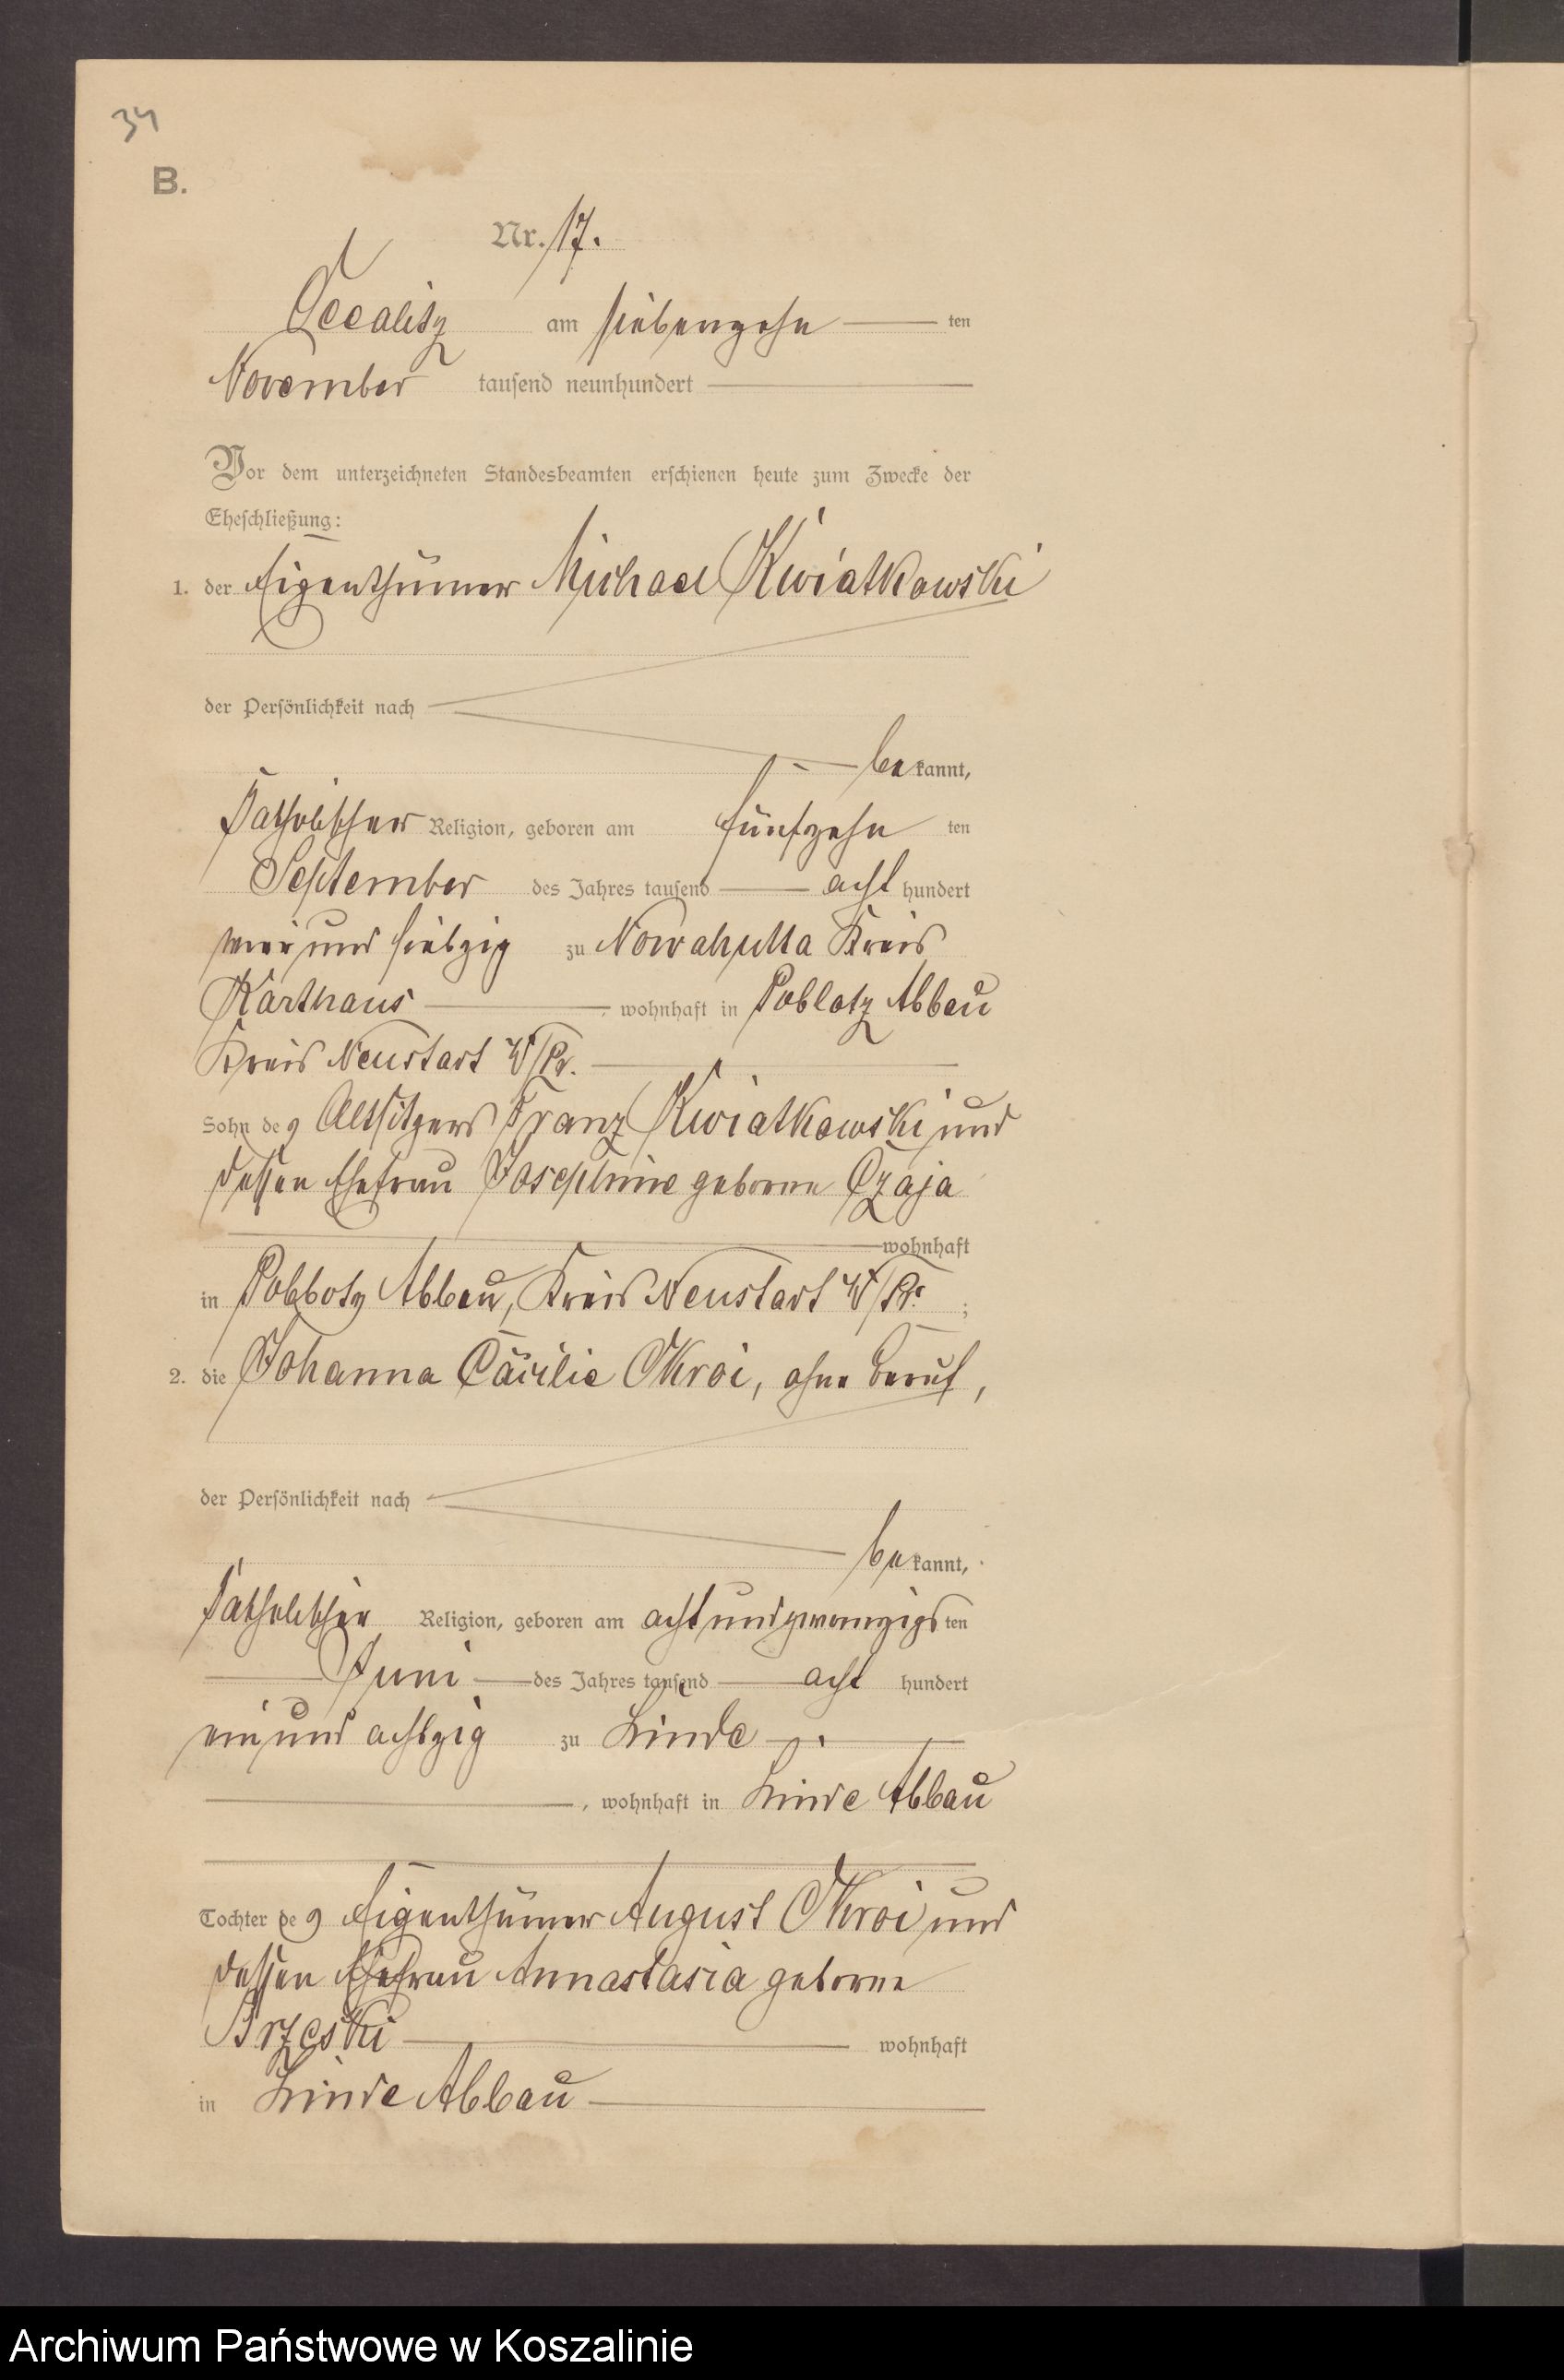 34
B.
Nr. 17.
Occalitz am siebenzehn ten
November tausend neunhundert
Vor dem unterzeichneten Standesbeamten erschienen heute zum Zwecke der
Eheschließung:
1. der Eigenthümer Michael Kwiatkowski
der Persönlichkeit nach
be kannt,
katholischer Religion, geboren am fünfzehn ten
September des Jahres tausend acht hundert
vier und siebzig zu Nowahutta Kreis
Karthaus wohnhaft in Poblotz Abbau
Kreis Neustadt W/Pr.
Sohn des Altsitzers Franz Kwiatkowski und
dessen Ehefrau Josephine geborne Czaja
wohnhaft
in Pobbotz Abbau, Kreis Neustadt W/Pr. ;
2. die Johanna Cäcilie Okroi, ohne Beruf,
der Persönlichkeit nach
be kannt,
katholischer Religion, geboren am acht und zwanzigs ten
Juni des Jahres tausend acht hundert
ein und achtzig zu Linde
, wohnhaft in Linde Abbau
Tochter des Eigenthümer August Okroi und
dessen Ehefrau Annastasia geborne
Brzeski wohnhaft
in Linde Abbau
Archiwum Państwowe w Koszalinie